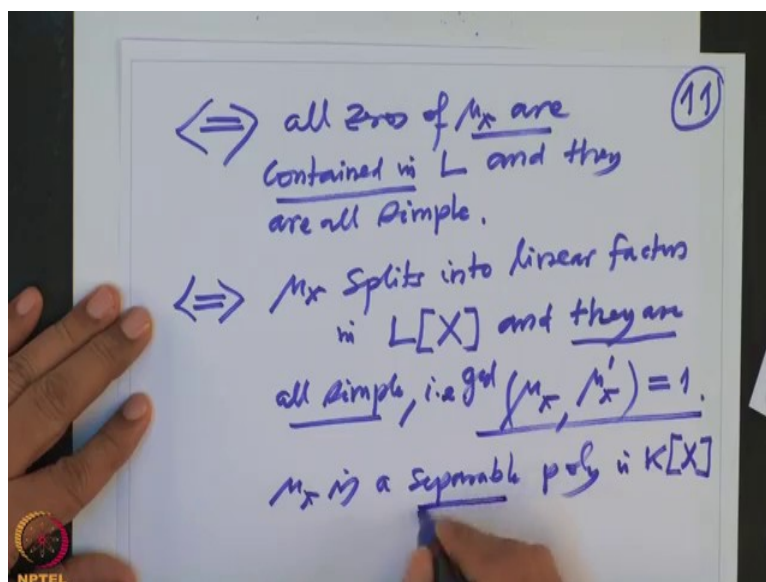 11
⟺ all zros of μ_x are
contained in L and they
are all simple.
⟺ μ_x splits into linear factors
in L[X] and they are
all simple, i.e gcd (μ_x, μ'_x) = 1.
μ_x is a separable poly in K[X]
NPTEL